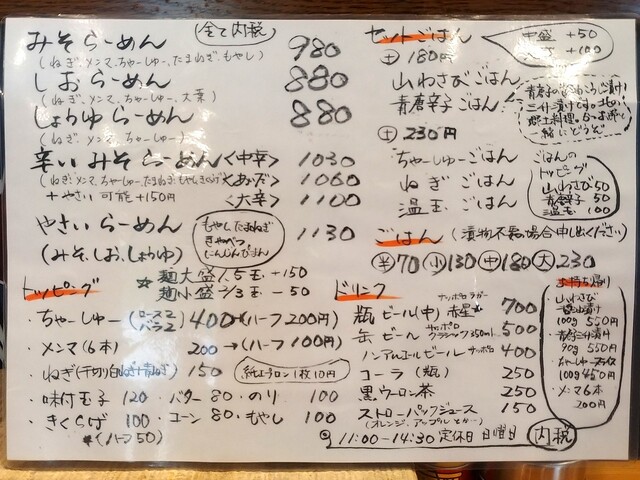 みそらーめん (全て内税) 980
(ねぎ、メンマ、ちゃーしゅー、たまねぎ、もやし)
しおらーめん 880
(ねぎ、メンマ、ちゃーしゅー、大葉)
しょうゆらーめん 880
(ねぎ、メンマ、ちゃーしゅー)
辛いみそらーめん <中辛> 1030
(ねぎ、メンマ、ちゃーしゅー、たまねぎ、もやし、きくらげ) <あいだ> 1060
+やさい可能+150円 <大辛> 1100
やさいらーめん 1130
(みそ、しお、しょうゆ)
もやし、たまねぎ
きゃべつ
にんじん、ぴーまん
☆麺大盛1.5玉+150
麺小盛2/3玉-50
トッピング
・ちゃーしゅー(ロース2 バラ2) 400→(ハーフ200円)
・メンマ(6本) 200→(ハーフ100円)
・ねぎ(千切り白ねぎ+青ねぎ) 150
紙エプロン1枚10円
・味付玉子 120・バター80・のり 100
・きくらげ 100・コーン80・もやし 100
*(ハーフ50)
セットごはん
中盛 +50
+100
+180円
山わさびごはん
青唐辛子ごはん
三升漬けです。北の
郷土料理。
一緒にどうぞ
+230円
ちゃーしゅーごはん
ねぎごはん
温玉ごはん
ごはんの
トッピング
山わさび50
青唐辛子50
温玉100
ごはん (漬物不要の場合申し出ください)
半70 小130 中180 大230
ドリンク
瓶ビール(中) サッポロラガー 赤星 700
缶ビール サッポロクラシック350ml 500
ノンアルコールビール サッポロ 400
コーラ(瓶) 250
黒ウーロン茶 250
ストローパックジュース 150
(オレンジ、アップルとか…)
お持ち帰り
・山わさび
醤油漬け
100g 550円
・青唐三升漬け
90g 550円
・ちゃーしゅー
100g 450円
・メンマ6本
200円
11:00-14:30 定休日 日曜日 内税